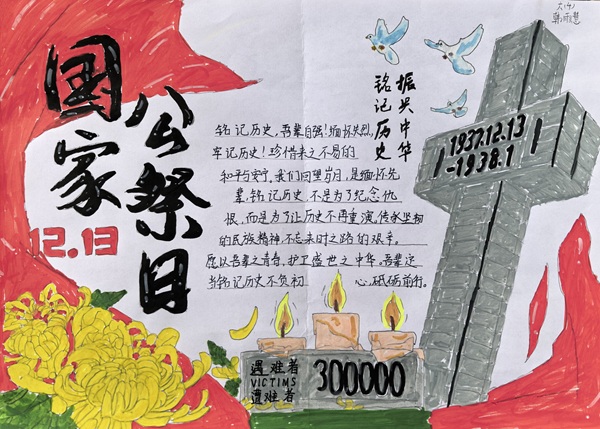 六(4)
国家
公祭日
12.13
铭记历史
振兴中华
铭记历史,吾辈自强!缅怀先烈,
牢记历史!珍惜来之不易的
和平与安宁,我们回望岁月,是缅怀先
辈,铭记历史,不是为了纪念仇
恨,而是为了让历史不再重演,传承坚韧
的民族精神,不忘来时之路的艰辛。
愿以吾辈之青春,护卫盛世之中华。吾辈定
当铭记历史不负初心,砥砺前行。
1937.12.13
-1938.1
遇难者
VICTIMS
遭难者
300000